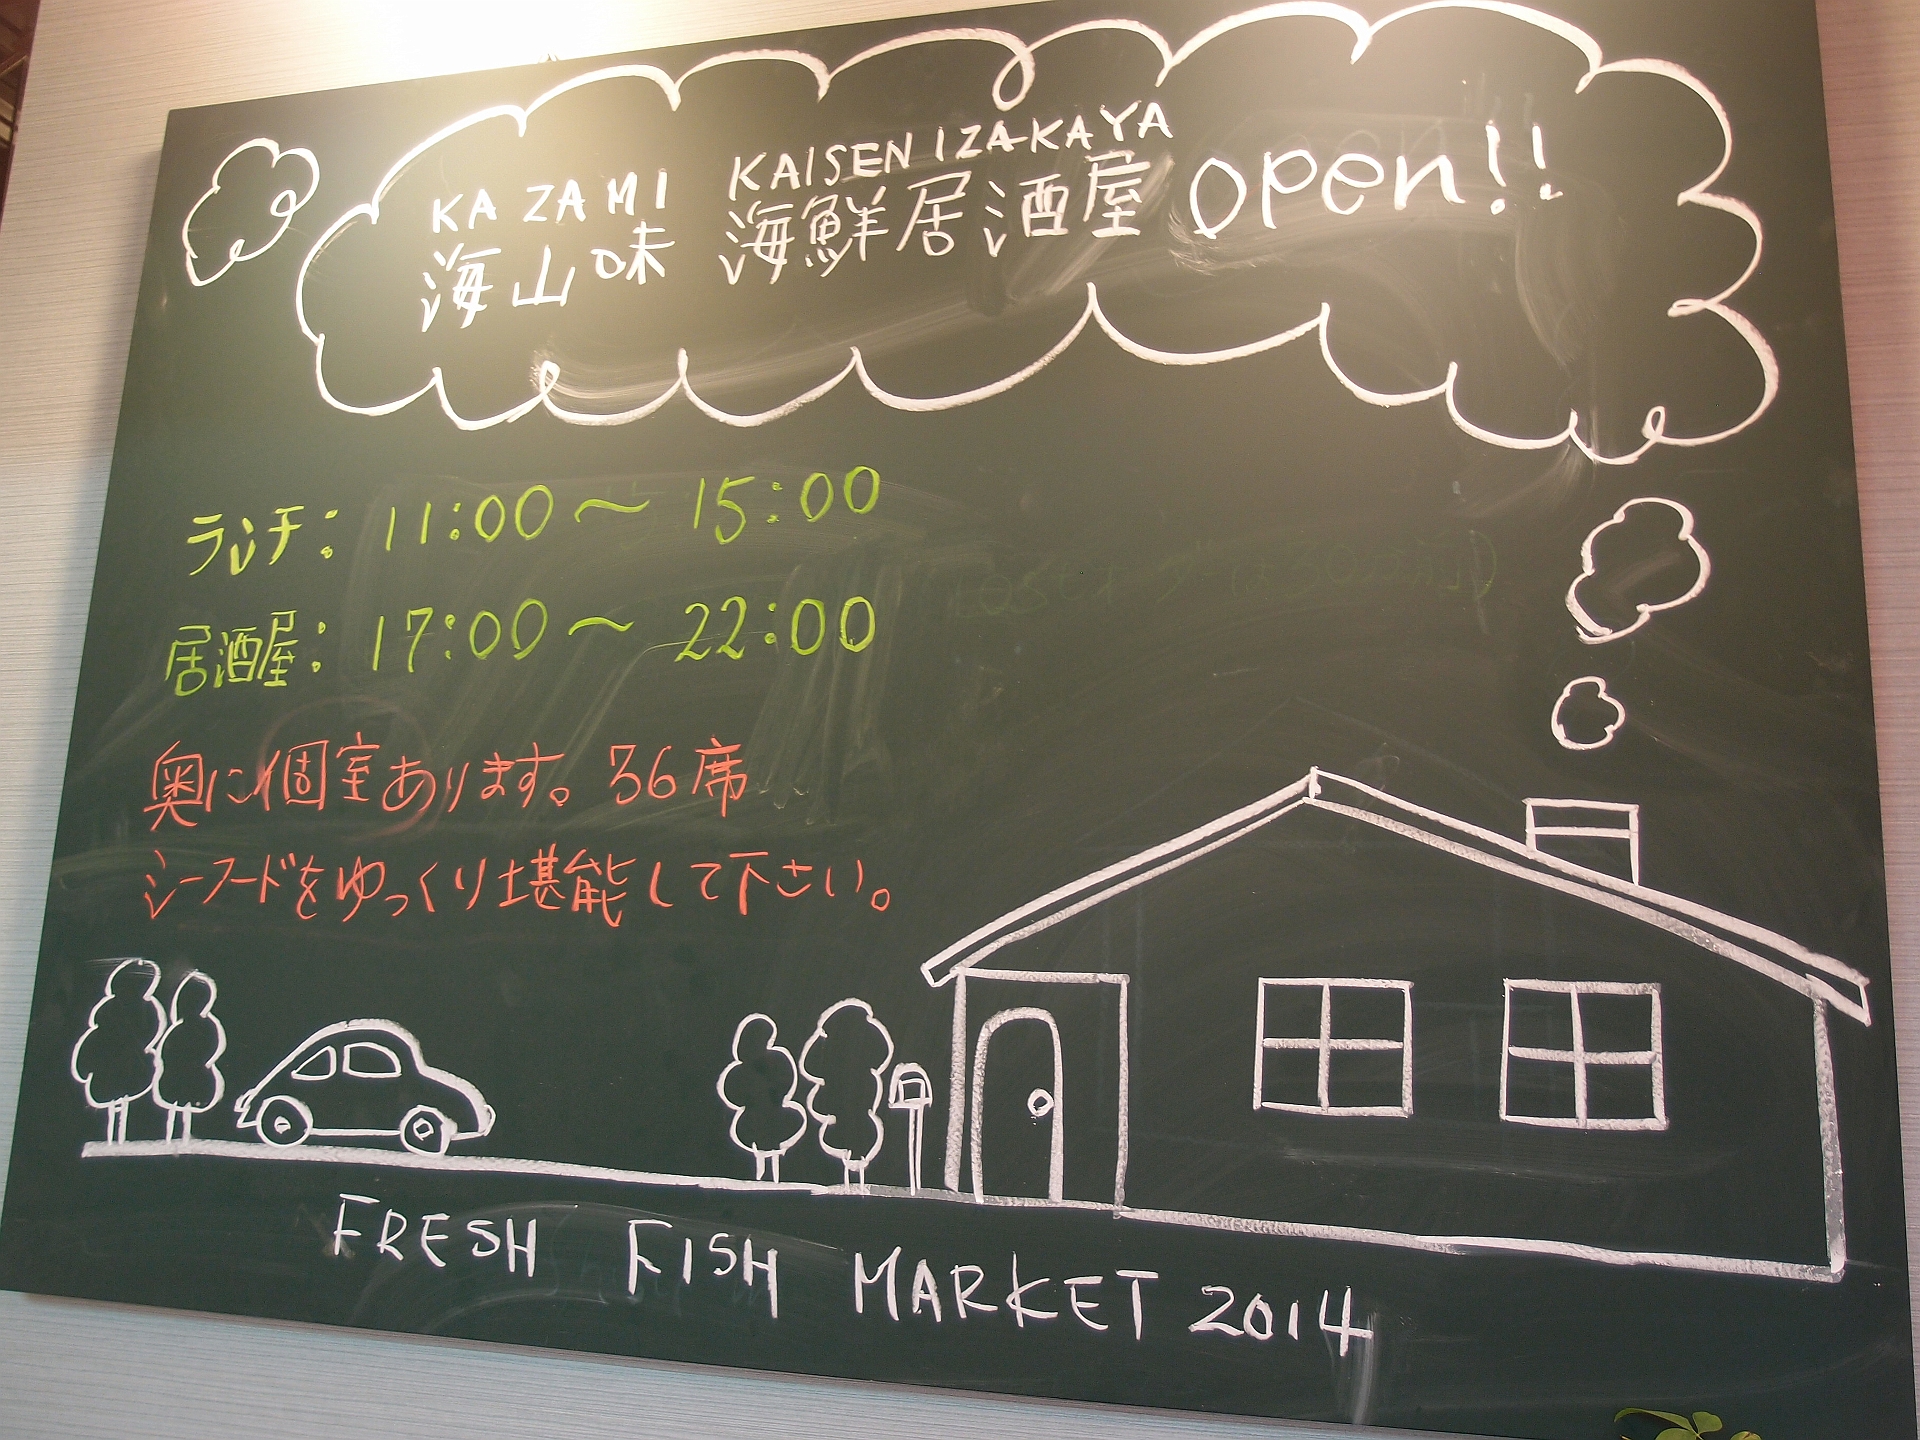 KAZAMI KAISEN IZAKAYA
海山味 海鮮居酒屋 open!!
ランチ: 11:00～15:00
居酒屋: 17:00～22:00
奥に個室あります。36席
シーフードをゆっくり堪能して下さい。
FRESH FISH MARKET 2014